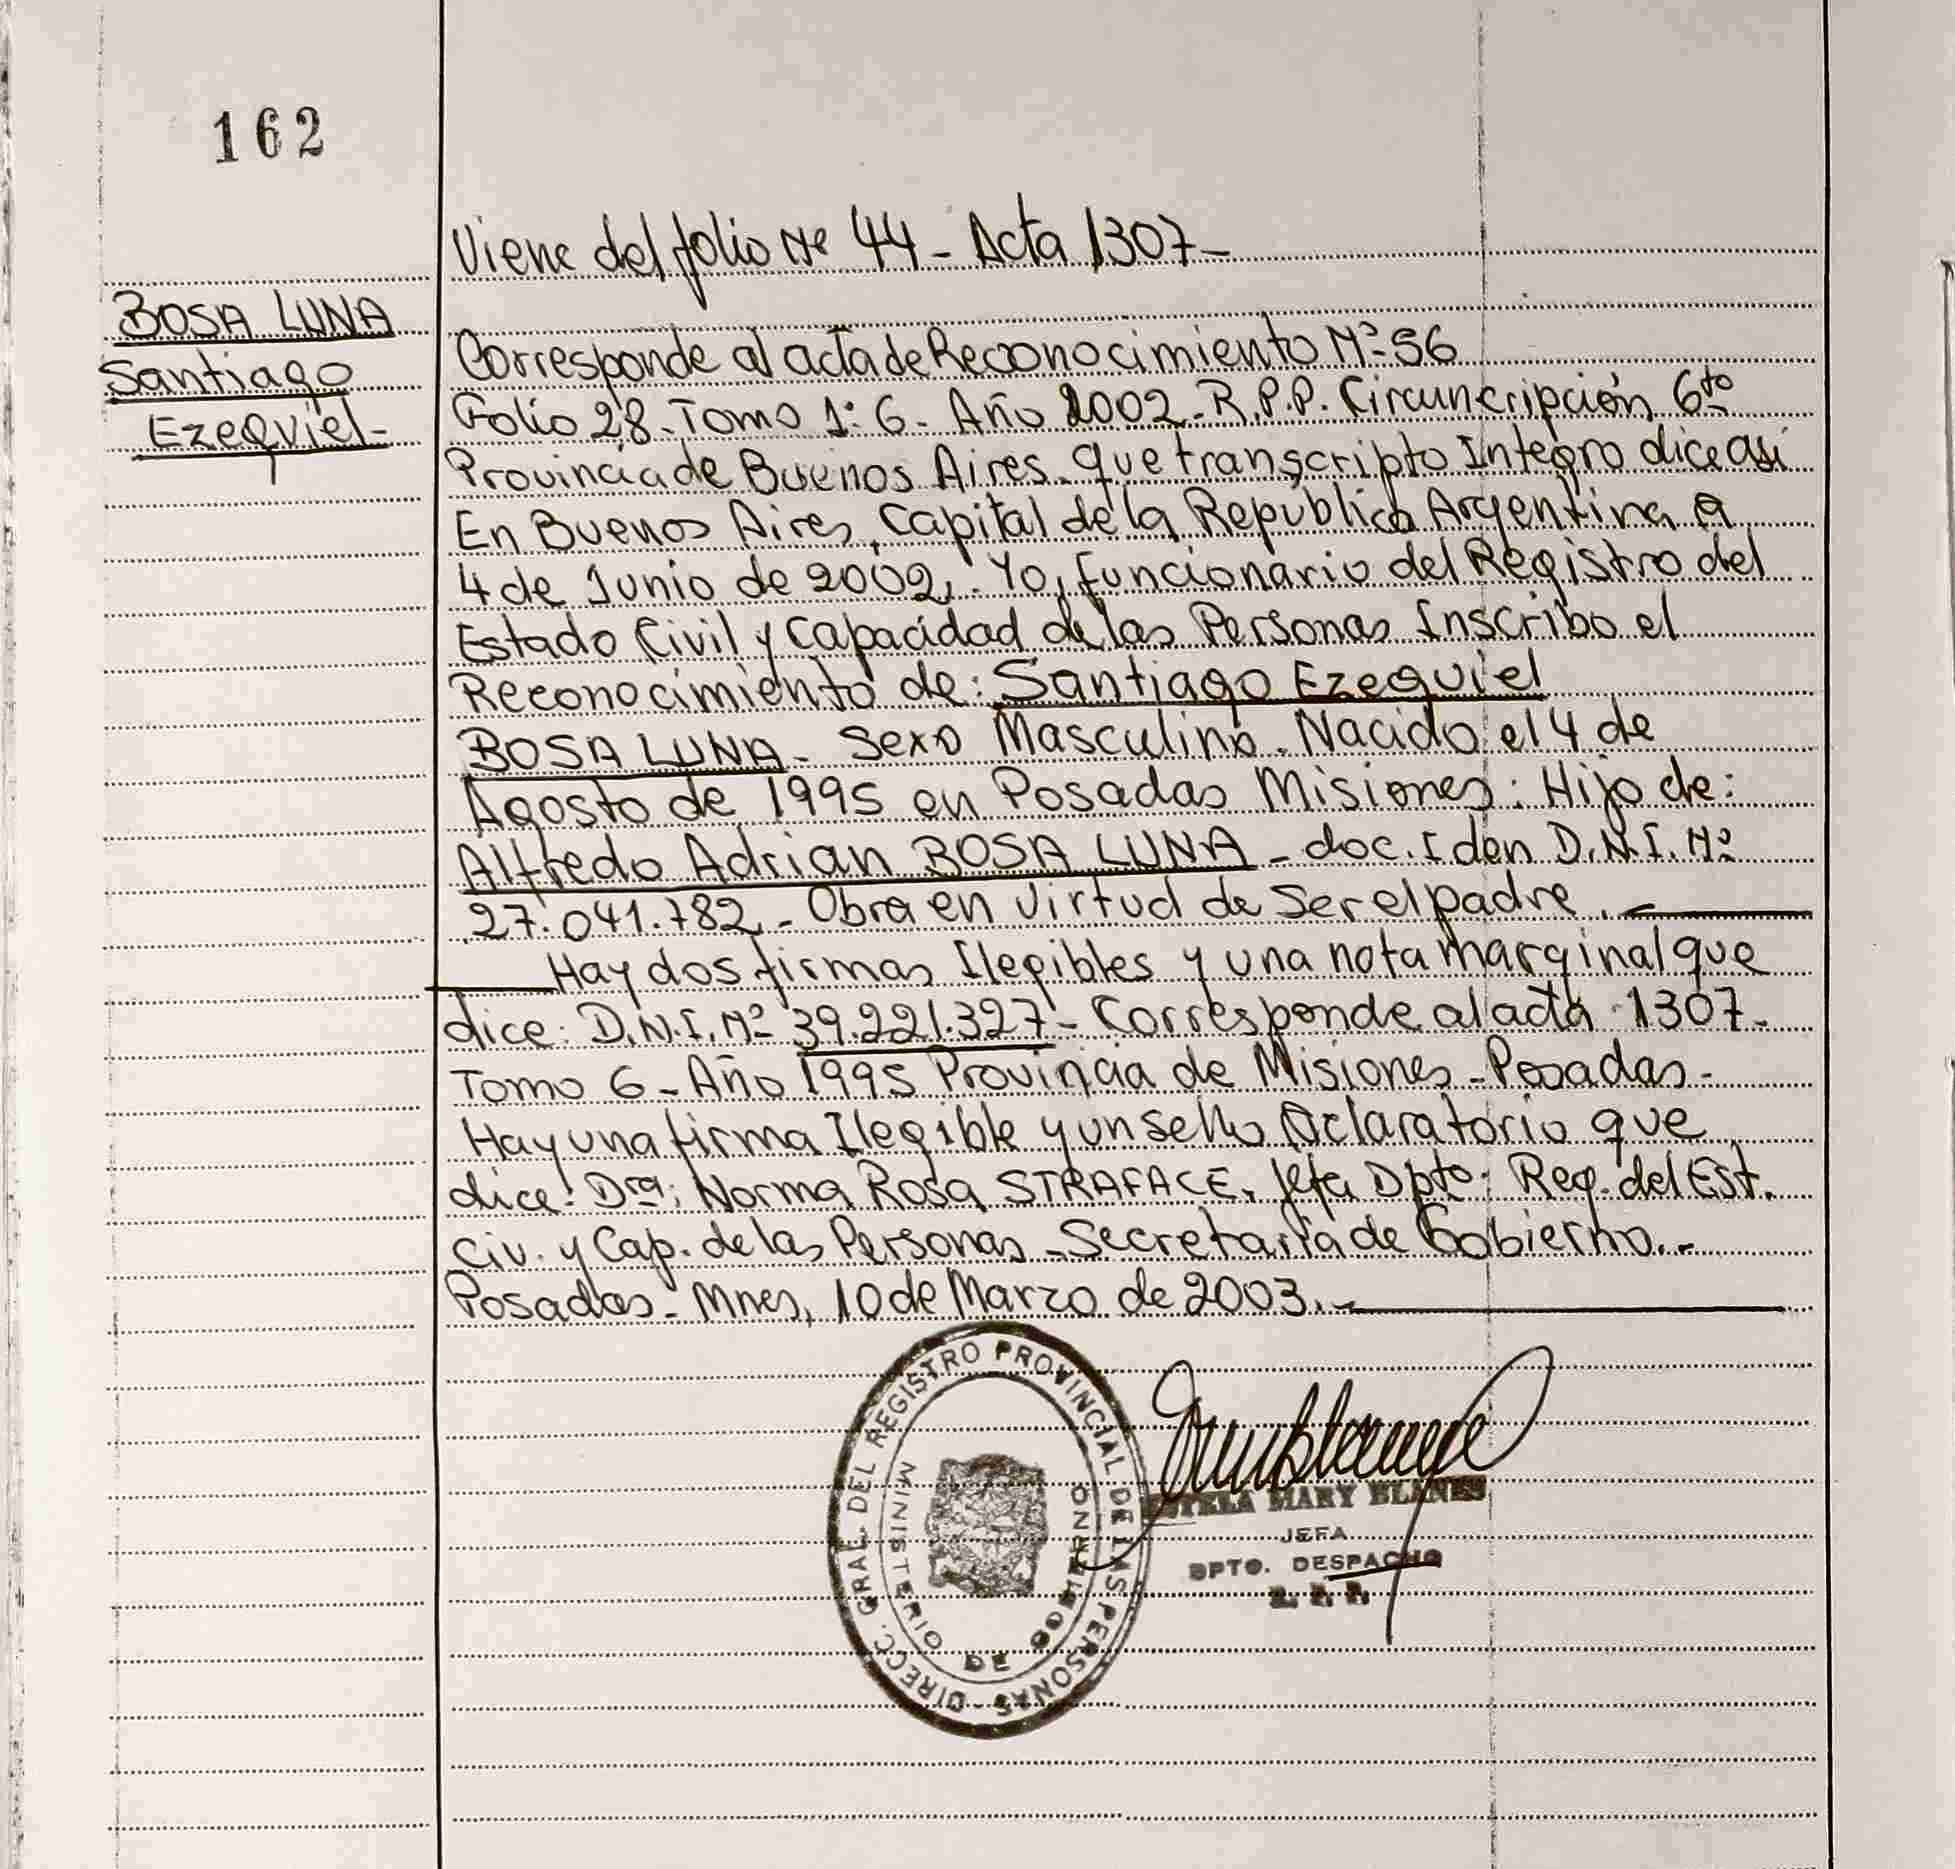 162
Viene del folio Nº 44 - Acta 1307 -
BOSA LUNA
Santiago
Ezequiel -
Corresponde al acta de Reconocimiento Nº 56
Folio 28 - Tomo 1: 6 - Año 2002 - R.P.P. Circuncripción 6to
Provincia de Buenos Aires. que transcripto Integro dice asi
En Buenos Aires, Capital de la República Argentina a
4 de Junio de 2002, . Yo, funcionario del Registro del
Estado Civil y Capacidad de las Personas Inscribo el
Reconocimiento de: Santiago Ezequiel
BOSA LUNA - Sexo Masculino. Nacido el 4 de
Agosto de 1995 en Posadas Misiones: Hijo de:
Alfredo Adrian BOSA LUNA - doc. Iden D.N.I. Nº
27.041.782 - Obra en virtud de ser el padre. -
Hay dos firmas Ilegibles y una nota marginal que
dice: D.N.I. Nº 39.221.327 - Corresponde al acta 1307 -
Tomo 6 - Año 1995 Provincia de Misiones - Posadas -
Hay una firma Ilegible y un sello Aclaratorio que
dice: Dra; Norma Rosa STRAFACE. Jefa Dpto: Reg. del Est.
Civ. y Cap. de las Personas - Secretaria de Gobierno. -
Posadas - Mnes, 10 de Marzo de 2003. -
DIRECC. GRAL. DEL REGISTRO PROVINCIAL DE LAS PERSONAS -
MINISTERIO DE GOBIERNO
MARY BLANES
JEFA
DPTO. DESPACHO
R. P. P.